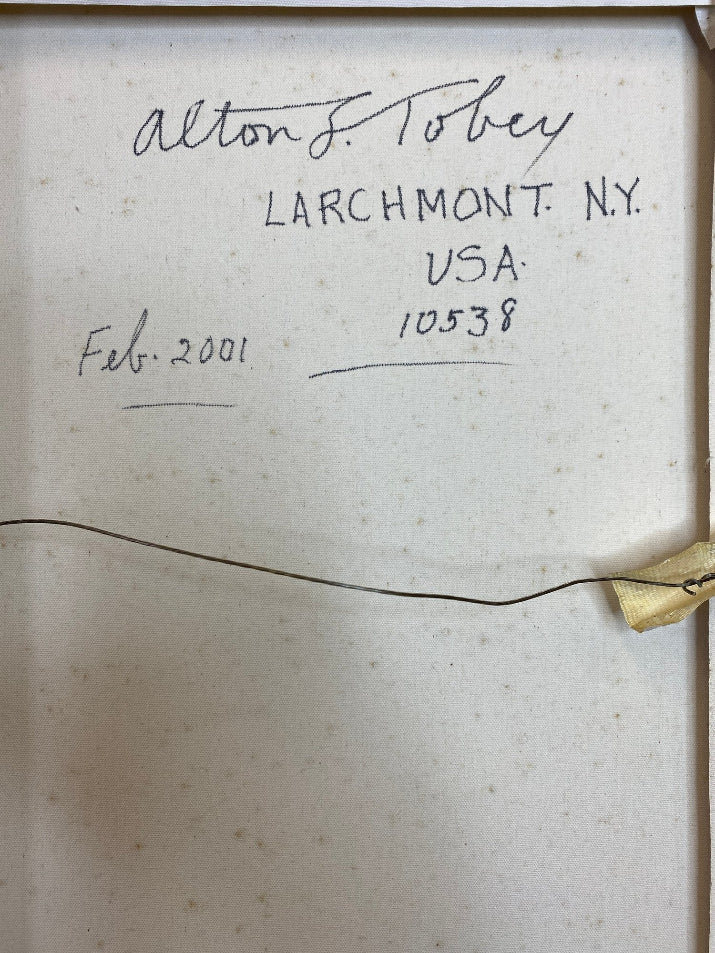 Alton S. Tobey
LARCHMONT. N.Y.
USA.
10538
Feb. 2001